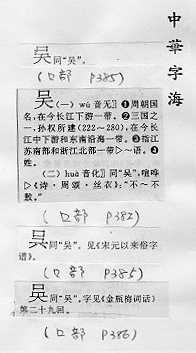 中華字海
吳同“吴”。
(口部 P385)
吴(一) wú音无〗❶周朝国
名,在今长江下游一带。❷三国之
一,孙权所建(222~280),在今长
江中下游和东南沿海一带。❸指江
苏南部和浙江北部一带▷~语。❹
姓。
(二) huà音化〗同“吴”,喧哗
▷《诗·周颂·丝衣》:“不~不
敖。”
(口部 P382)
同“吴”。见《宋元以来俗字
谱》。
(口部 P385)
同“吴”。字见《金瓶梅词话》
第二十九回。
(口部 P386)